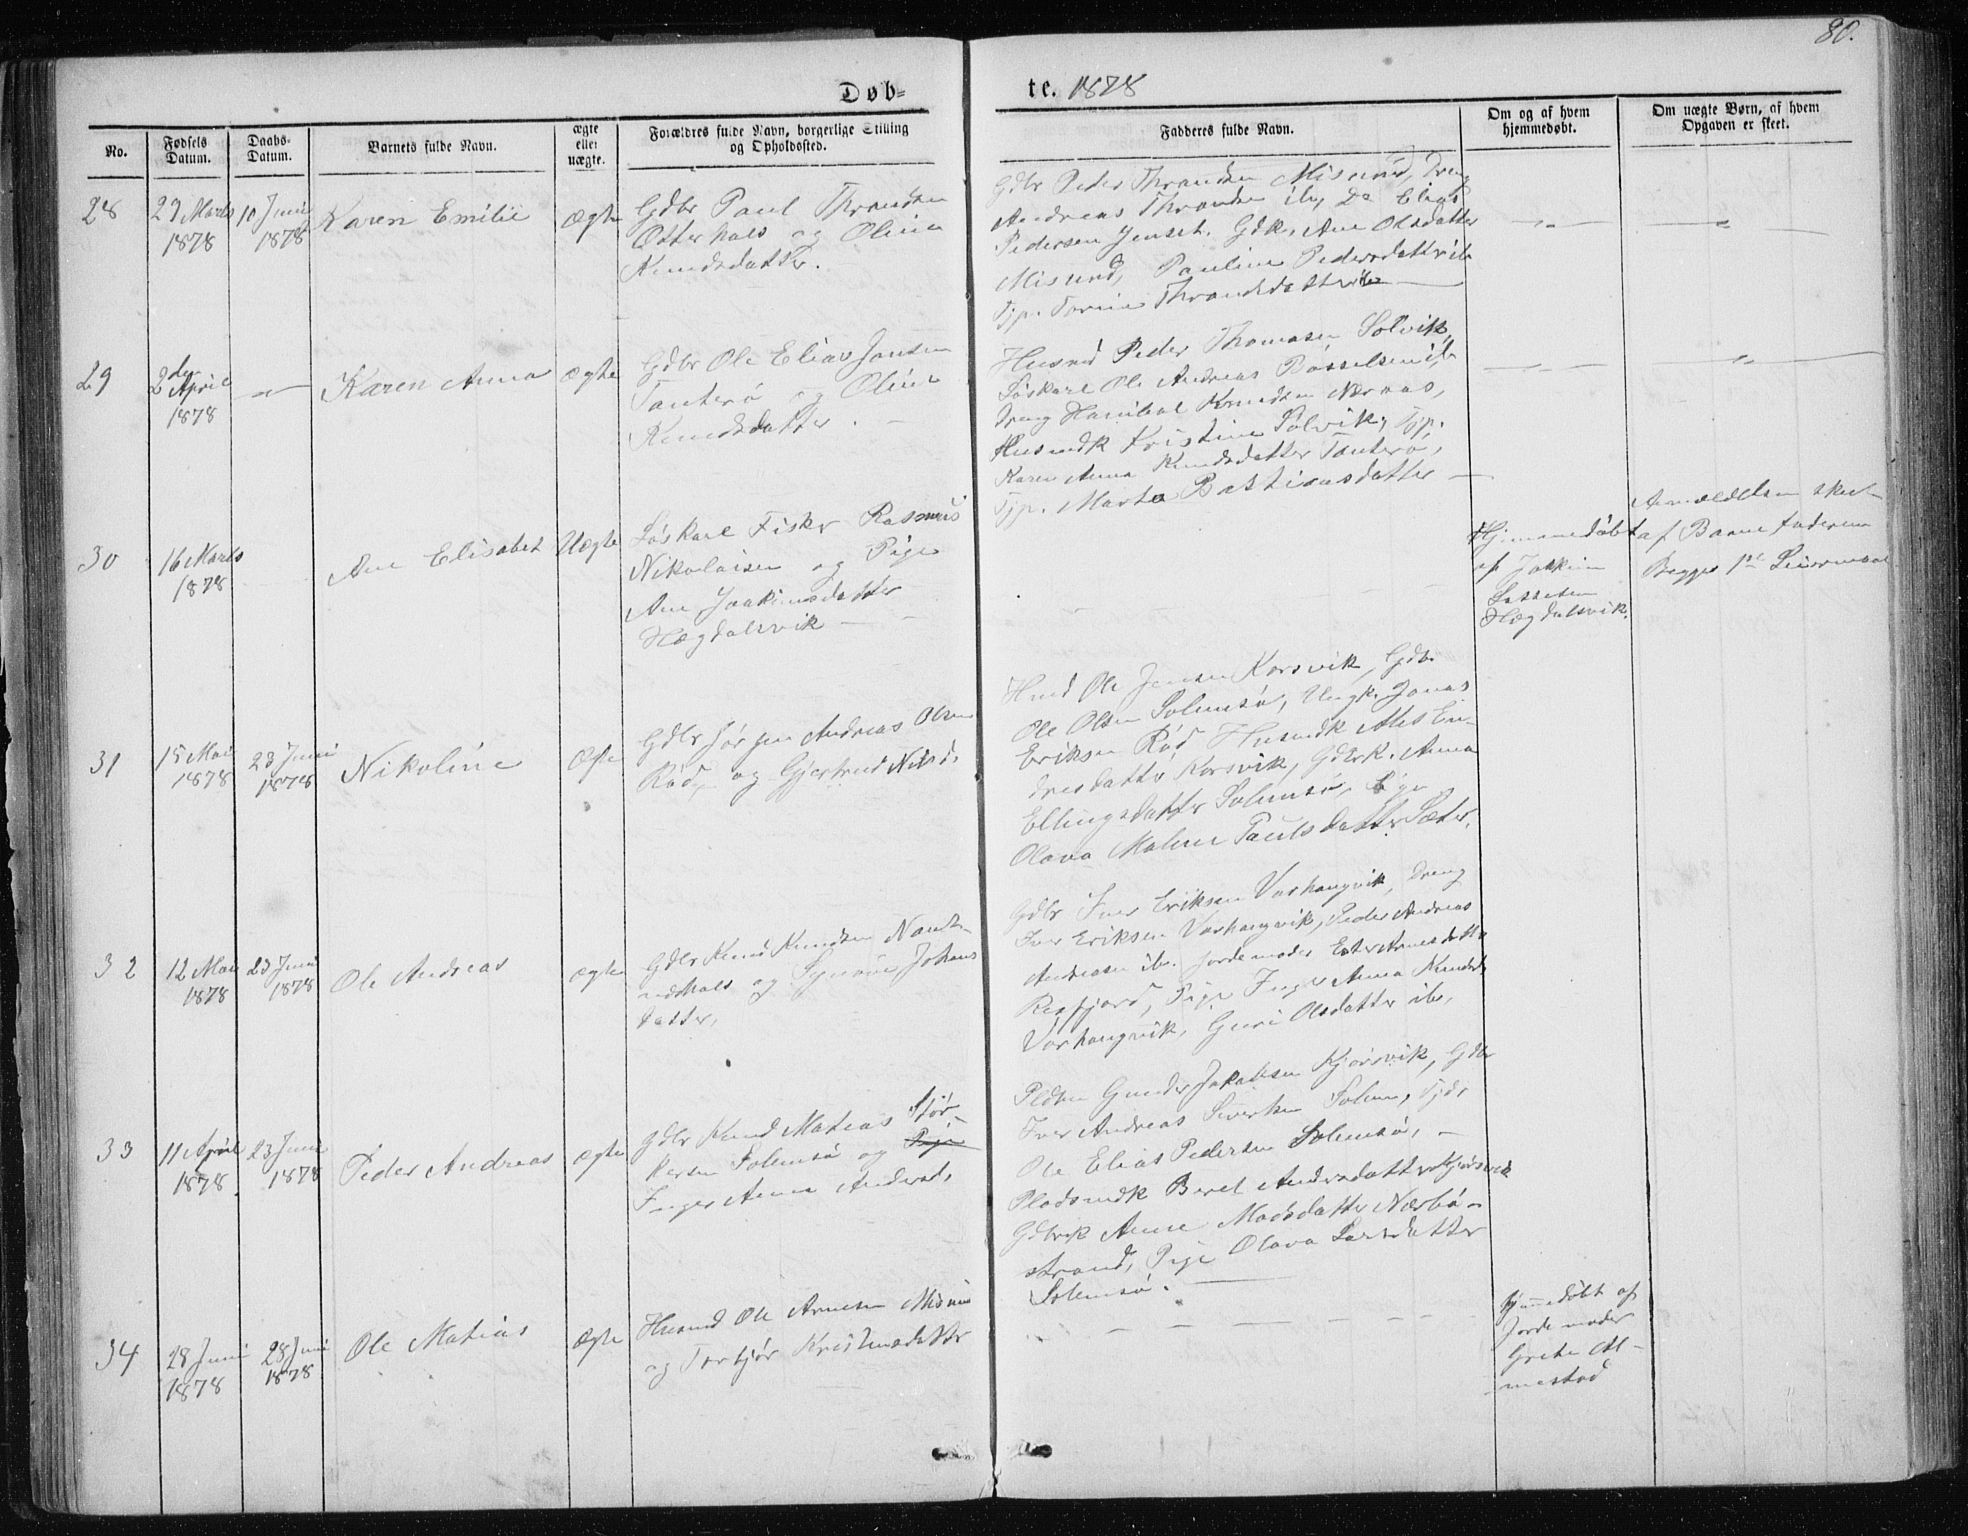 80.
Døb=
te. 1878
No.
Fødsels
Datum.
Daabs-
Datum.
Barnets fulde Navn.
ægte
eller
uægte.
Forældres fulde Navn, borgerlige Stilling
og Opholdssted.
Fadderes fulde Navn.
Om og af hvem
hjemmedøbt.
Om uægte Børn, af hvem
Opgaven er skeet.
28
29 Marts
1878
10 Juni
1878
Karen Emilie
Ægte
Gdbr Paul Throndsen
Otterhals og Oline
Knudsdatter.
Gdbr Peder Throndsen Misund, Dreng
Andreas Throndsen ib, Do Elias
Pedersen Jenset. Gdk. Ane Olsdatter
Misund, Pauline Pedersdatter ib
Tjp. Torine Throndsdatter ib
29
2den
April
1878
Karen Anna
Ægte
Gdbr Ole Elias Jansen
Tanterø og Oline
Knudsdatter.
Husmd Peder Thomasen Solvik,
Løskarl Ole Andreas ib
Dreng Hanibal Knudsen Næraas,
Husmdk Kristine Solvik, Tjp.
Karen Anna Knudsdatter Tanterø,
Tjp. Marta Bastiansdatter
30
16 Marts
1878
Ane Elisabet
Uægte
Løskarl Fisker Rasmus
Nikolaisen og Pige
Ane Joakimsdatter
Hægdalsvik
Hjemmedøbt
af Jokkim
Lassesen
Hægdalsvik.
Anmeldelsen skeet
af Barnefaderen
Begges 1ste Leiermaal
31
15 Mai
1878
23 Juni
1878
Nikoline
Ægte
Gdbr Jørgen Andreas Olsen
Rød, og Gjertrud Nilsd.
Husmd Ole Jensen Korsvik, Gdbr
Ole Olsen Solemsø, Ungk. Jonas
Eriksen Rød Husmdk Mes En-
dresdatter Korsvik, Gdbrk. Anna
Ellingsdatter Solemsø, Pige
Olava Malene Paulsdatter Sæter.
32
12 Mai
1878
23 Juni
1878
Ole Andreas
ægte
Gdbr Knud Knudsen
og Synøve Johans
datter,
Gdbr Iver Eriksen Varhaugvik, Dreng
Iver Eriksen Varhaugvik, Peder Andreas
Andreasen ib. Jordemoder Ester Arnesdatter
Pige Inger Anna Knudsd.
Varhaugvik, Guri Olsdatter ib,
33
11 April
1878
23 Juni
1878
Peder Andreas
ægte
Gdbr Knud Matias Stør-
kersen Solemsø og Pige
Inger Anna Andersd.
Gunder Jakobsen Kjørsvik, Gdbr
Iver Andreas Sivertsen Solem, Tjd.
Ole Elias Pedersen Solemsø,
Pladsmdk Beret Andersdatter Kjørsvik
Gdbrk Anne Madsdatter Nærbø-
strand, Pige Olava Larsdatter
Solemsø.
34
28 Juni
1878
28 Juni
1878
Ole Matias
ægte
Husmd Ole Arnesen Misund
og Torbjør Kristensdatter
Hjemmedøbt af
Jordemoder
Grete Al-
mestad